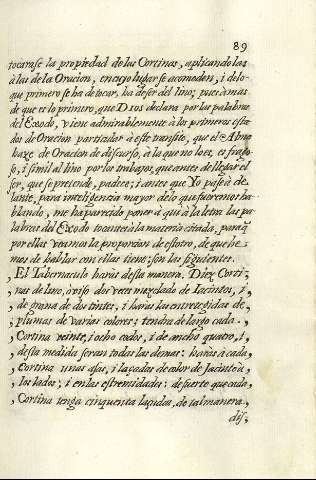 89
tocarase la propiedad de las Cortinas, aplicandolas
à las de la Oracion, en cuyo lugar se acomoden, i de lo
que primero se ha de tocar, ha de ser del lino; pues à mas
de que es lo primero, que Dios declara por las palabras
del Exodo, viene admirablemente à los primeros esta
dos de Oracion particular à este transito, que el Alma
haze de Oracion de discurso, à la que no lo es, es frago
so, i similal lino por los trabajos, que antes de llegar el
ser, que se pretende, padece; i antes que Yo passe à de
lante, para inteligencia mayor de lo que fueremos ha
blando, me ha parecido poner aqui à la letra las pa
labras del Exodo tocantes à la materia citada, paraq
por ellas veamos la proporcion de esotro, de que he
mos de hablar con ellas tiene; son las siguientes.
, El Tabernaculo haras desta manera. Diez Corti,
, nas de lino, ò viso dos veces mezclado de Jacintos, i,
, de grana de dos tintes, i haras las entretegidas de,
, plumas de varias colores; tendra de largo cada,
, Cortina veinte, i ocho codos, i de ancho quatro, i,
, desta medida seran todas las demas: haras à cada,
, Cortina unas asas, i lazadas de color de Jacinto à,
, los lados; i en las estremidades: de suerte que cada,
, Cortina tenga cinquenta lazadas, de tal manera,
dis,